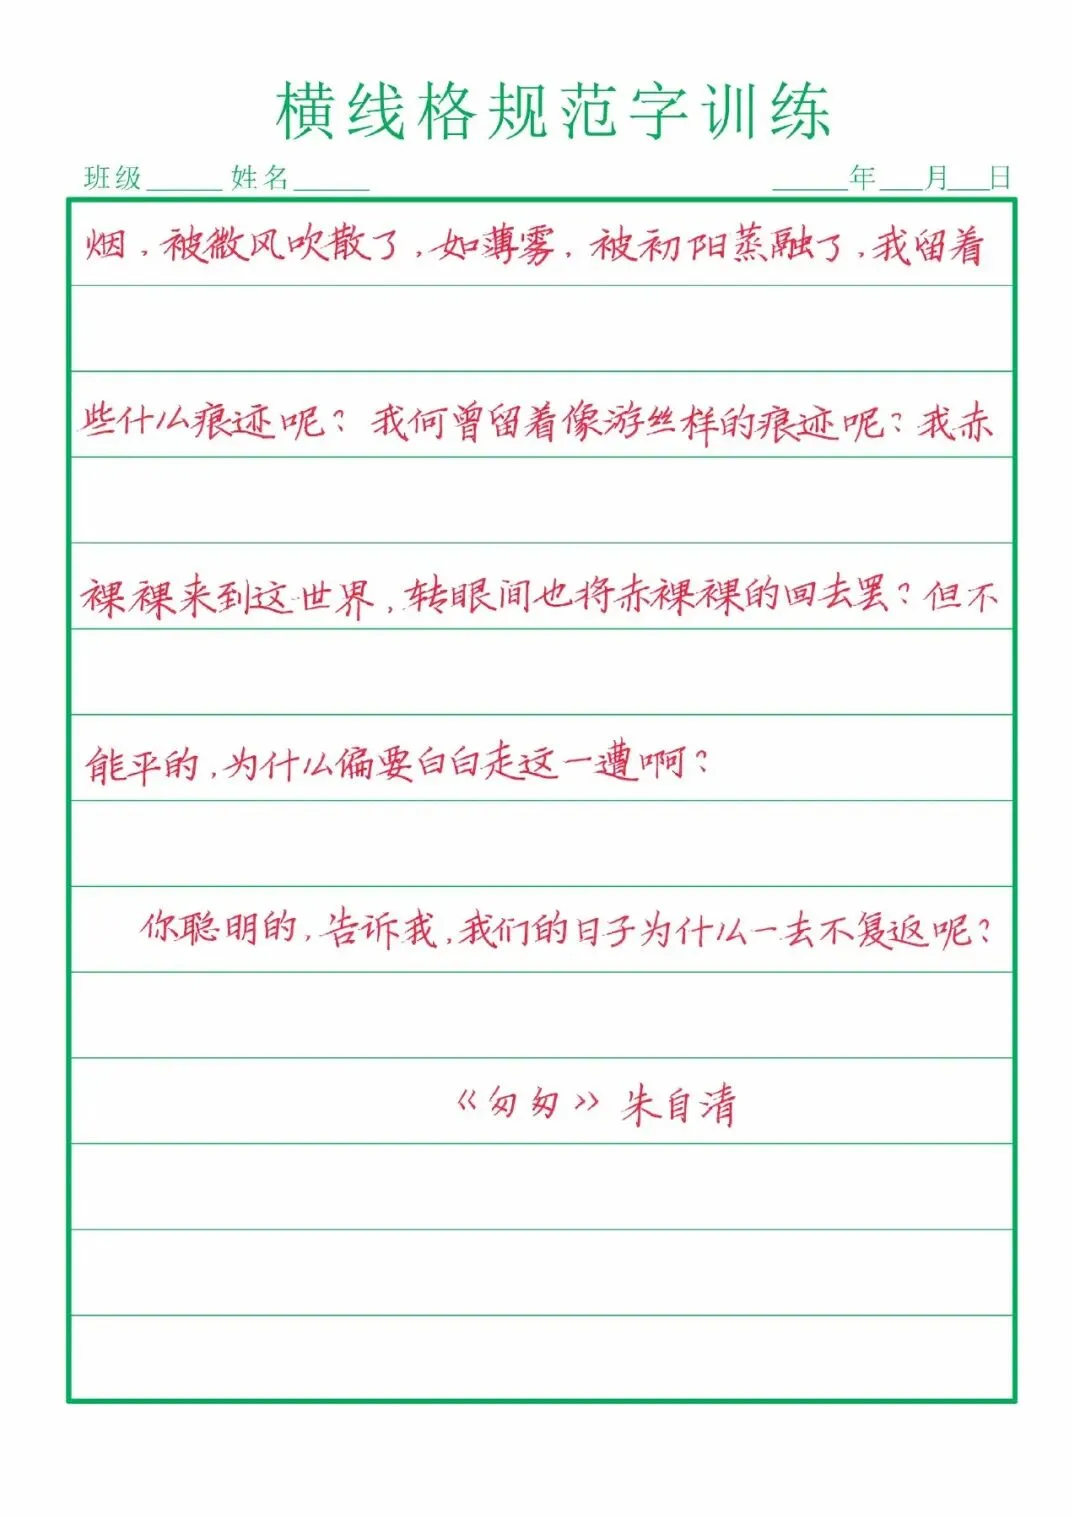 横线格规范字训练
班级______ 姓名______ ______年___月___日
烟，被微风吹散了，如薄雾，被初阳蒸融了，我留着
些什么痕迹呢？我何曾留着像游丝样的痕迹呢？我赤
裸裸来到这世界，转眼间也将赤裸裸的回去罢？但不
能平的，为什么偏要白白走这一遭啊？
你聪明的，告诉我，我们的日子为什么一去不复返呢？
《匆匆》朱自清